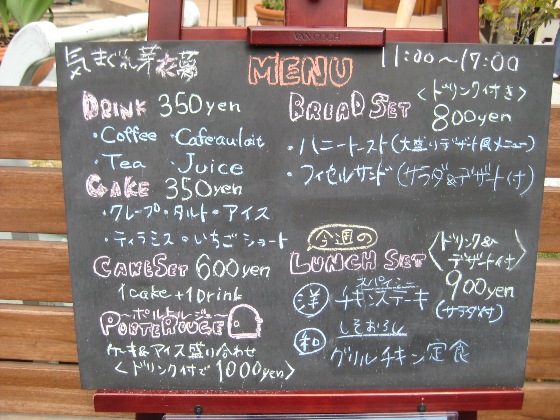 気まぐれ芽衣夢
MENU
11:00~17:00
DRINK 350yen
・Coffee ・Cafeaulait
・Tea ・Juice
CAKE 350yen
・クレープ・タルト・アイス
・ティラミス・いちごショート
CAKESET 600yen
1cake+1Drink
~ポルトルージュ~
PORTEROUGE
ケーキ&アイス盛り合わせ
<ドリンク付で1000yen>
BREAD SET <ドリンク付き>
800yen
・ハニートースト(大盛りデザート風メニュー)
・フィセルサンド(サラダ&デザート付)
今週の
LUNCH SET <ドリンク&デザート付>
900yen
(サラダ付)
洋 スパイシーチキンステーキ
和 しそおろし
グリルチキン定食